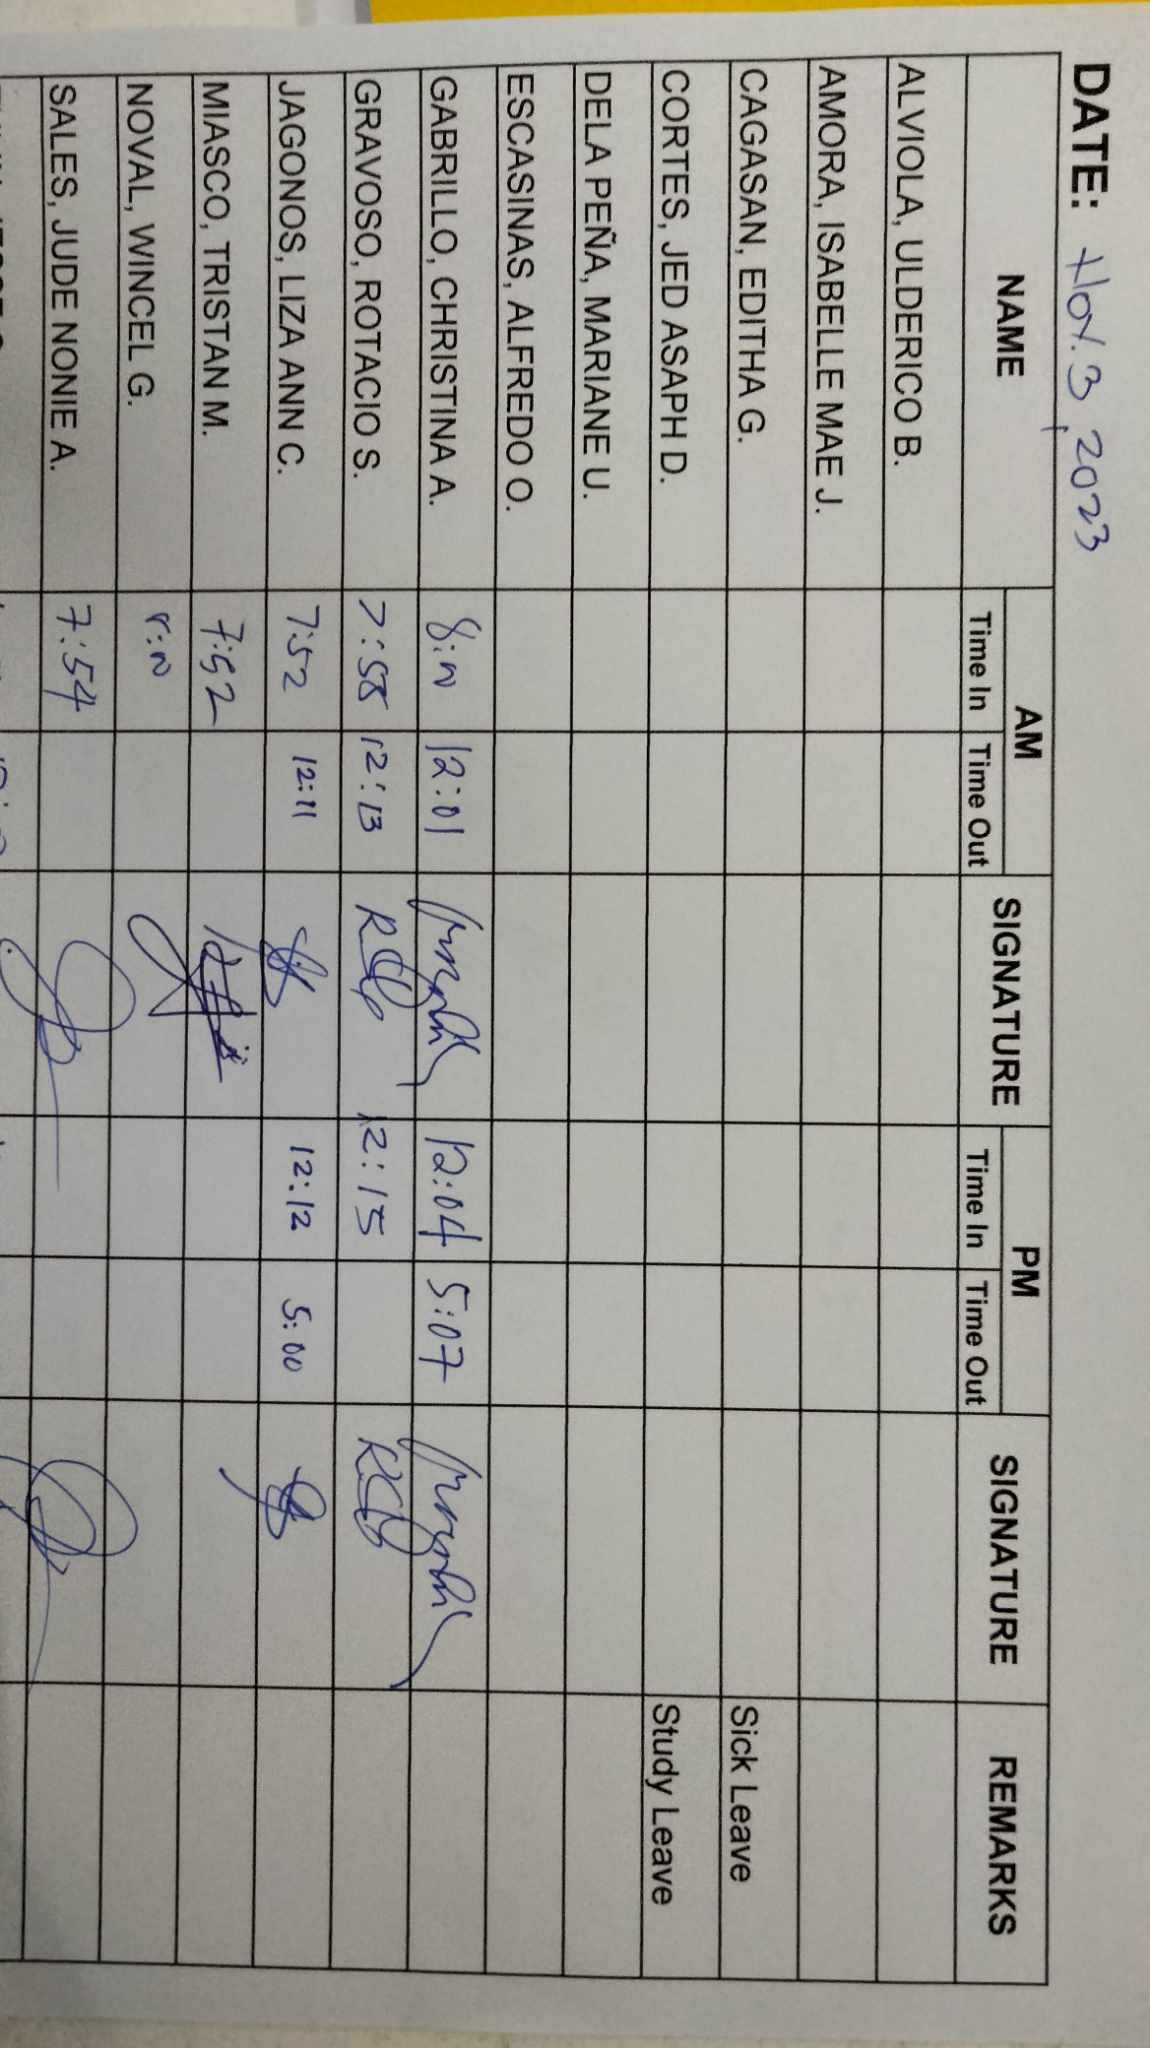 DATE: Nov. 3, 2023
NAME AM SIGNATURE PM SIGNATURE REMARKS
Time In Time Out Time In Time Out
ALVIOLA, ULDERICO B.
AMORA, ISABELLE MAE J.
CAGASAN, EDITHA G. Sick Leave
CORTES, JED ASAPH D. Study Leave
DELA PEÑA, MARIANE U.
ESCASINAS, ALFREDO O.
GABRILLO, CHRISTINA A. 8:00 12:01 12:04 5:07
GRAVOSO, ROTACIO S. 7:58 12:13 12:15
JAGONOS, LIZA ANN C. 7:52 12:11 12:12 5:00
MIASCO, TRISTAN M. 7:52
NOVAL, WINCEL G. 8:00
SALES, JUDE NONIE A. 7:54